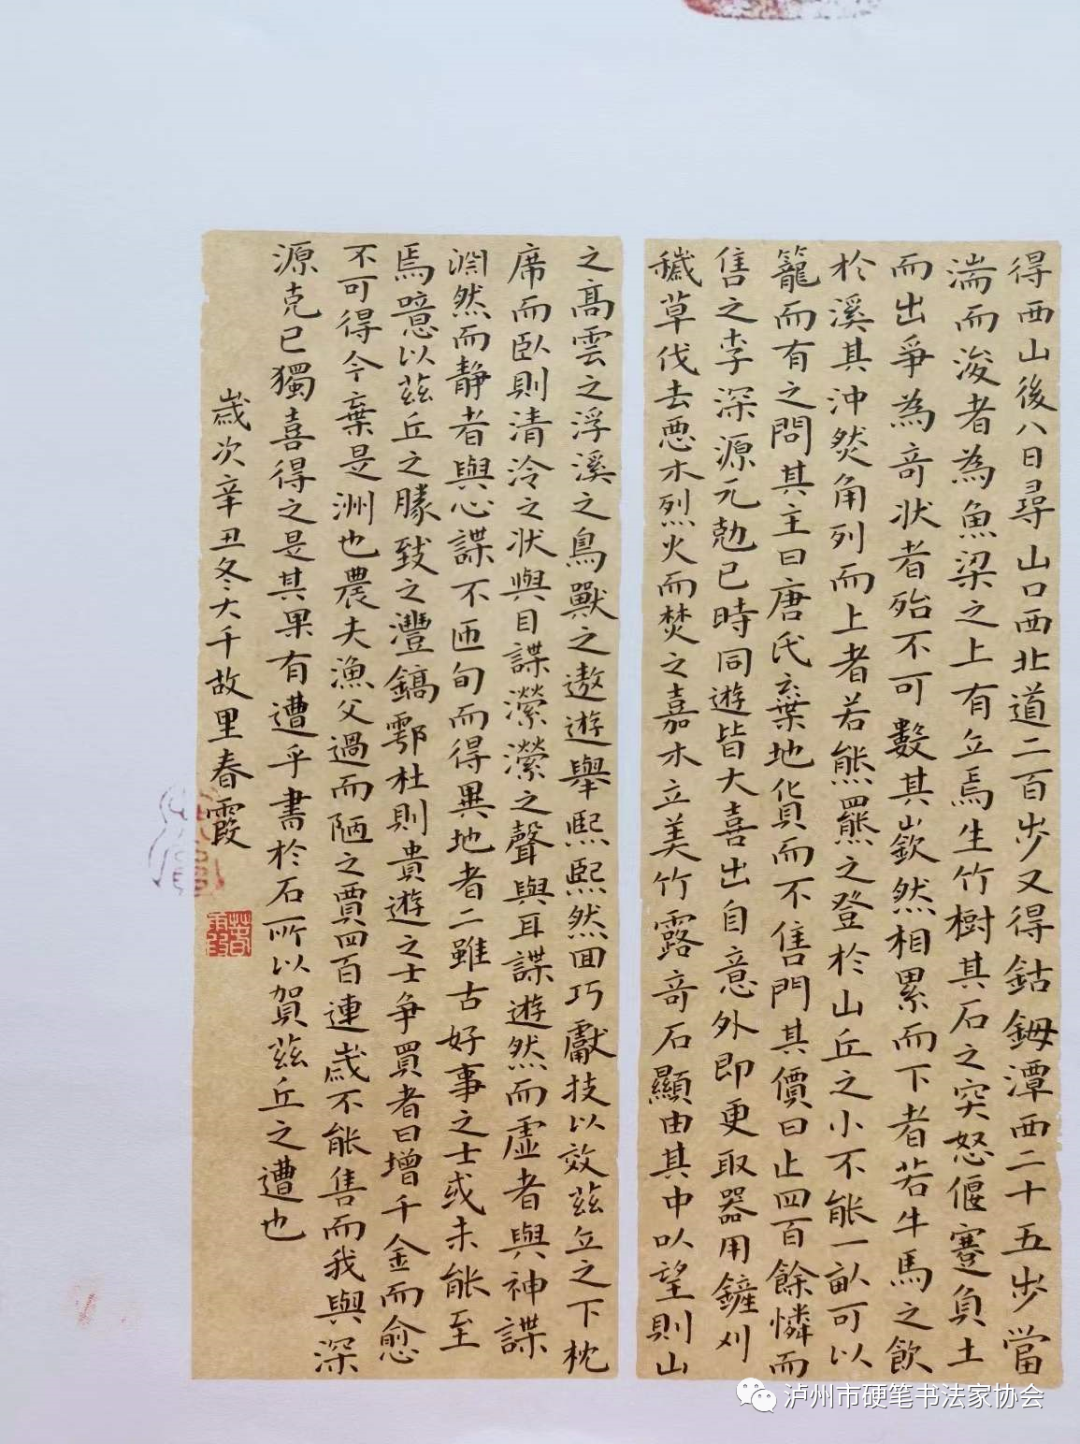 得西山後八日尋山口西北道二百步又得鈷鉧潭西二十五步當
湍而浚者為魚梁之上有丘焉生竹樹其石之突怒偃蹇負土
而出爭為奇狀者殆不可數其嶔然相累而下者若牛馬之飲
於溪其沖然角列而上者若熊羆之登於山丘之小不能一畝可以
籠而有之問其主曰唐氏棄地貨而不售問其價曰止四百餘憐而
售之李深源元勊已時同遊皆大喜出自意外即更取器用鏟刈
穢草伐去惡木烈火而焚之嘉木立美竹露奇石顯由其中以望則山
之高雲之浮溪之鳥獸之遨遊舉熙熙然回巧獻技以效茲丘之下枕
席而臥則清泠之狀與目謀瀠瀠之聲與耳謀遊然而虛者與神謀
淵然而靜者與心謀不匝旬而得異地者二雖古好事之士或未能至
焉噫以茲丘之勝致之灃鎬鄠杜則貴遊之士爭買者曰增千金而愈
不可得今棄是洲也農夫漁父過而陋之賈四百連歲不能售而我與深
源克已獨喜得之是其果有遭乎書於石所以賀茲丘之遭也
歲次辛丑冬大千故里春霞
泸州市硬笔书法家协会